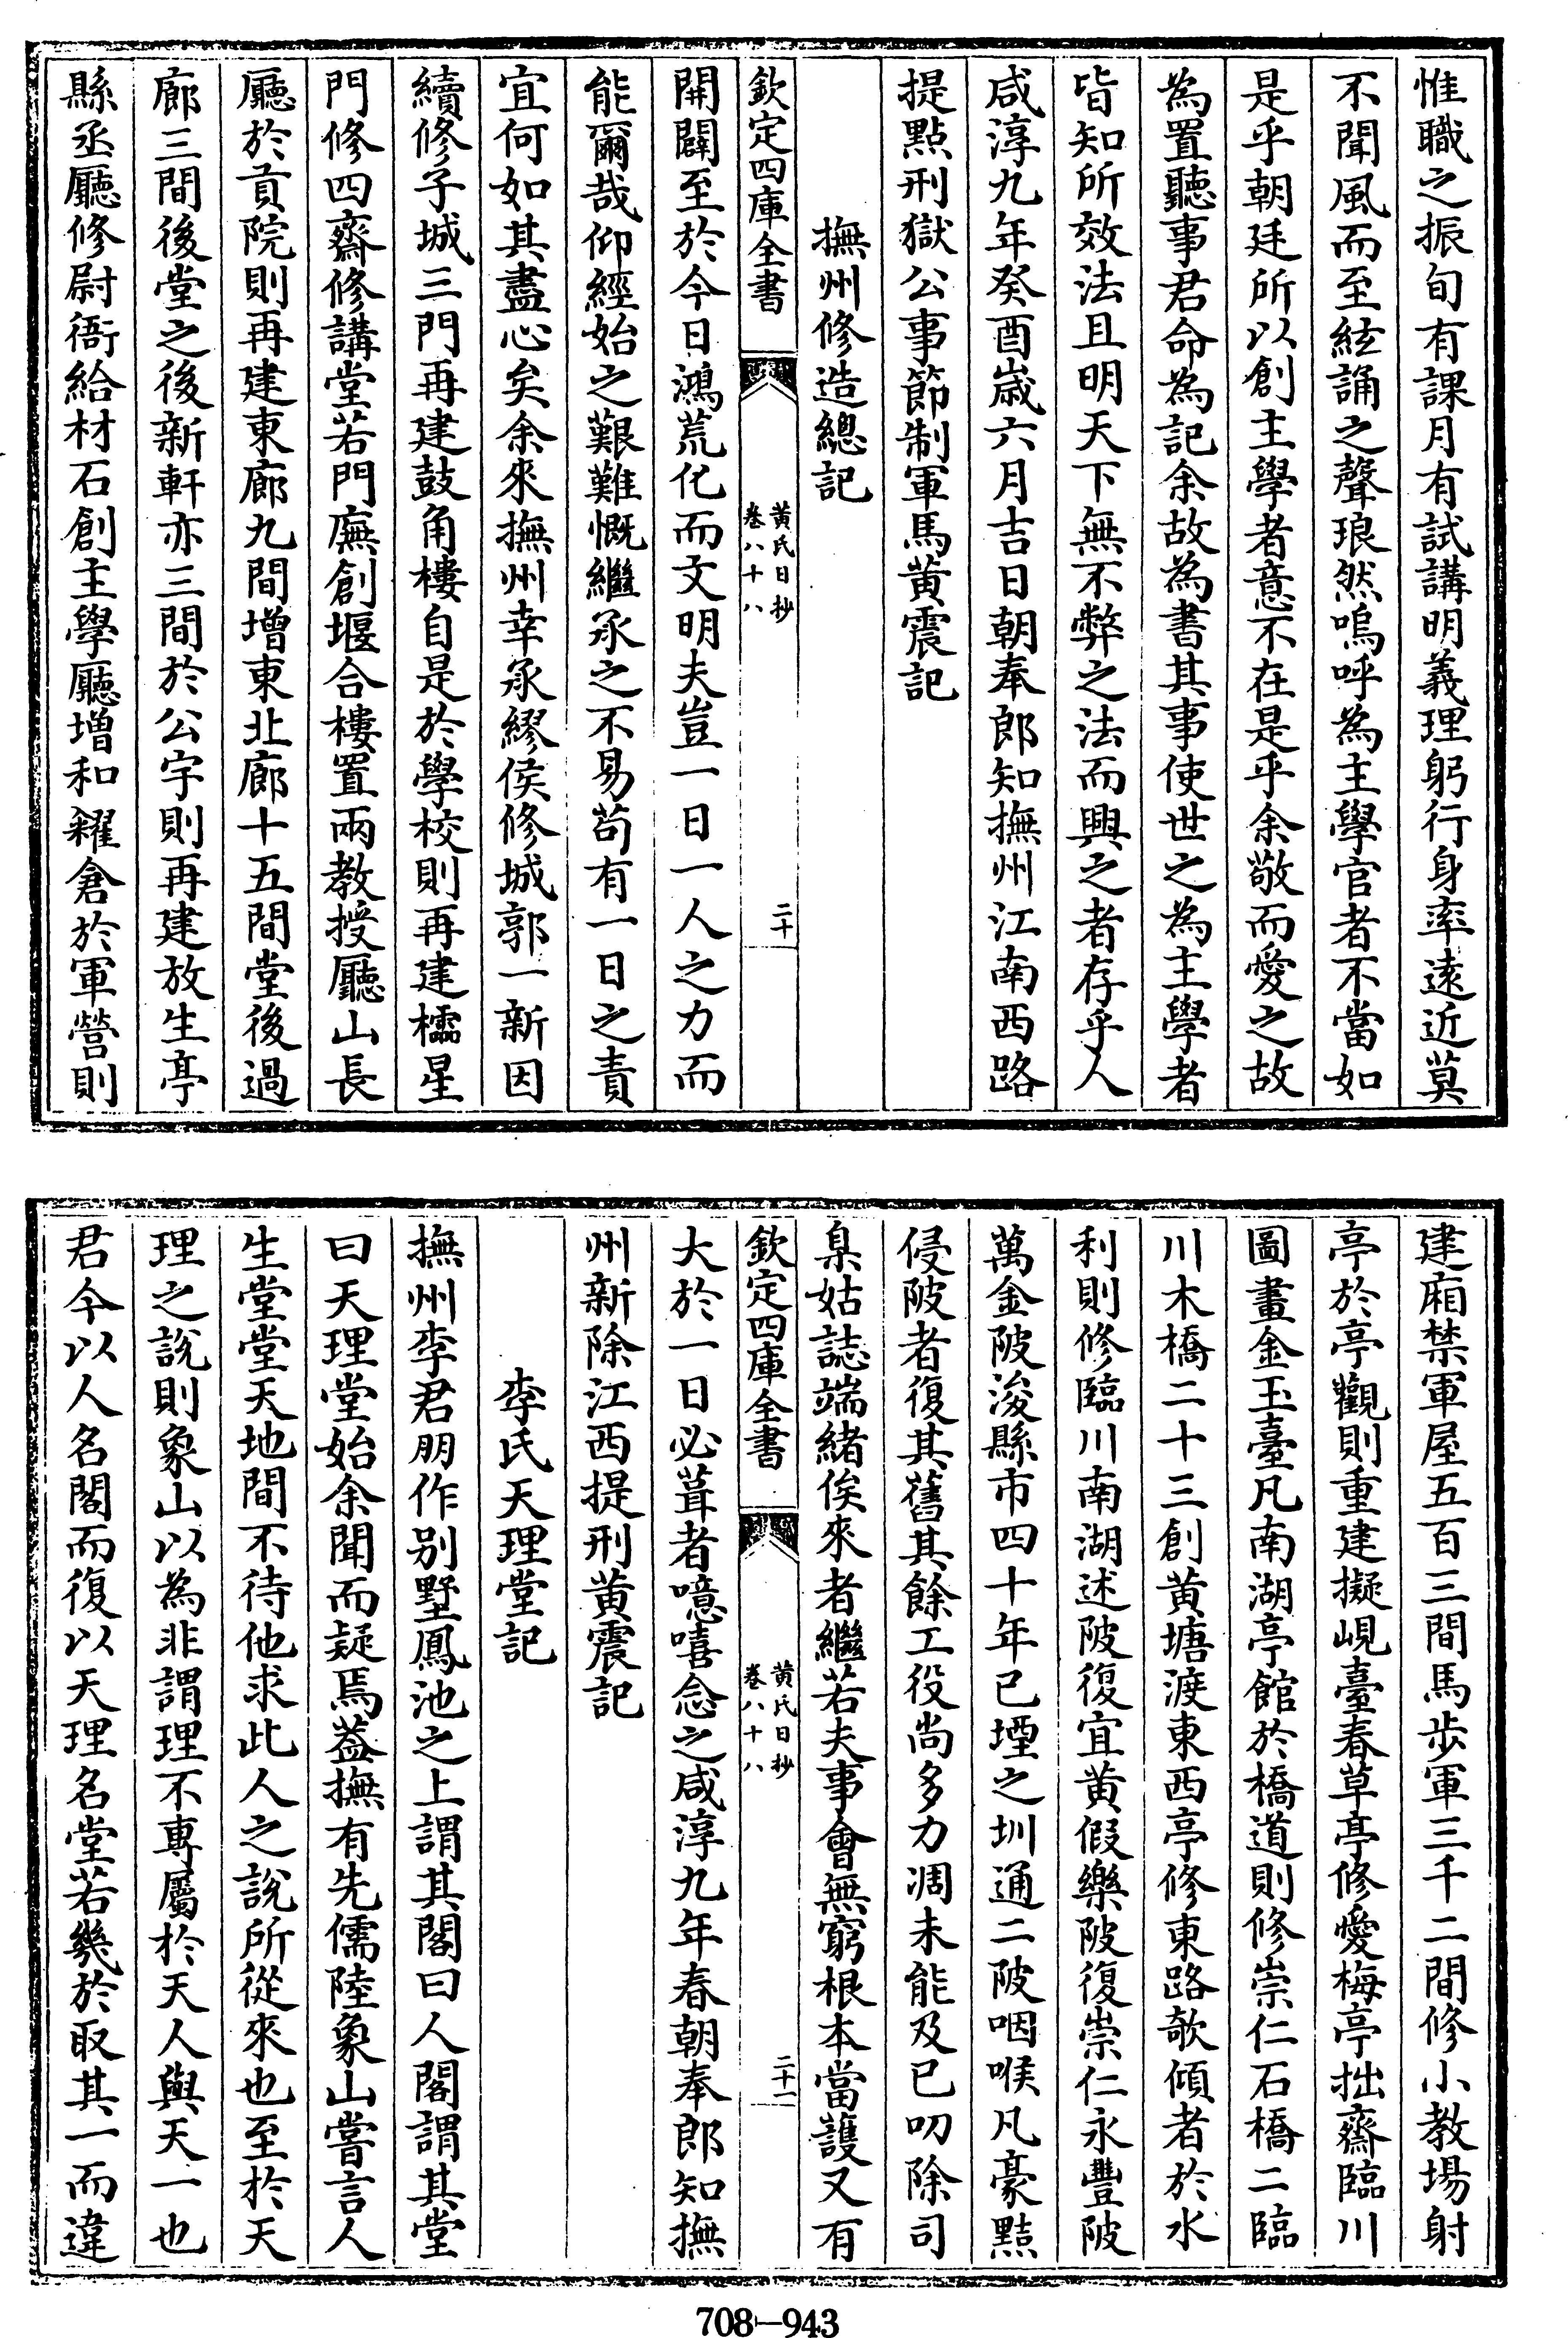 惟職之振旬有課月有試講明義理躬行身率遠近莫
不聞風而至絃誦之聲琅然嗚呼為主學官者不當如
是乎朝廷所以創主學者意不在是乎余敬而愛之故
為置聽事君命為記余故為書其事使世之為主學者
皆知所效法且明天下無不弊之法而興之者存乎人
咸淳九年癸酉歲六月吉日朝奉郎知撫州江南西路
提點刑獄公事節制軍馬黃震記
撫州修造總記
欽定四庫全書
黃氏日抄
卷八十八
二十
開闢至於今日鴻荒化而文明夫豈一日一人之力而
能爾哉仰經始之艱難慨繼承之不易茍有一日之責
宜何如其盡心矣余來撫州幸承繆侯修城郭一新因
續修子城三門再建鼓角樓自是於學校則再建櫺星
門修四齋修講堂若門廡創堰合樓置兩教授廳山長
廳於貢院則再建東廊九間增東北廊十五間堂後過
廊三間後堂之後新軒亦三間於公宇則再建放生亭
縣丞廳修尉衙給材石創主學廳增和糴倉於軍營則
建廂禁軍屋五百三間馬步軍三千二間修小教場射
亭於亭觀則重建擬峴臺春草亭修愛梅亭拙齋臨川
圖畫金玉臺凡南湖亭館於橋道則修崇仁石橋二臨
川木橋二十三創黃塘渡東西亭修東路欹傾者於水
利則修臨川南湖述陂復宜黃假樂陂復崇仁永豐陂
萬金陂浚縣市四十年已堙之圳通二陂咽喉凡豪黠
侵陂者復其舊其餘工役尚多力凋未能及已叨除司
臬姑誌端緒俟來者繼若夫事會無窮根本當護又有
欽定四庫全書
黃氏日抄
卷八十八
二十一
大於一日必葺者噫嘻念之咸淳九年春朝奉郎知撫
州新除江西提刑黃震記
李氏天理堂記
撫州李君朋作别墅鳳池之上謂其閣曰人閣謂其堂
曰天理堂始余聞而疑焉葢撫有先儒陸象山嘗言人
生堂堂天地間不待他求此人之說所從來也至於天
理之說則象山以為非謂理不專屬於天人與天一也
君今以人名閣而復以天理名堂若幾於取其一而違
708—943